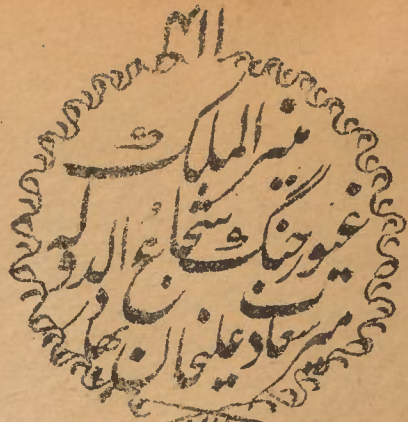 منیر الملک
غیور جنگ شجاع الدولہ
میر سعادت علیخان بہادر